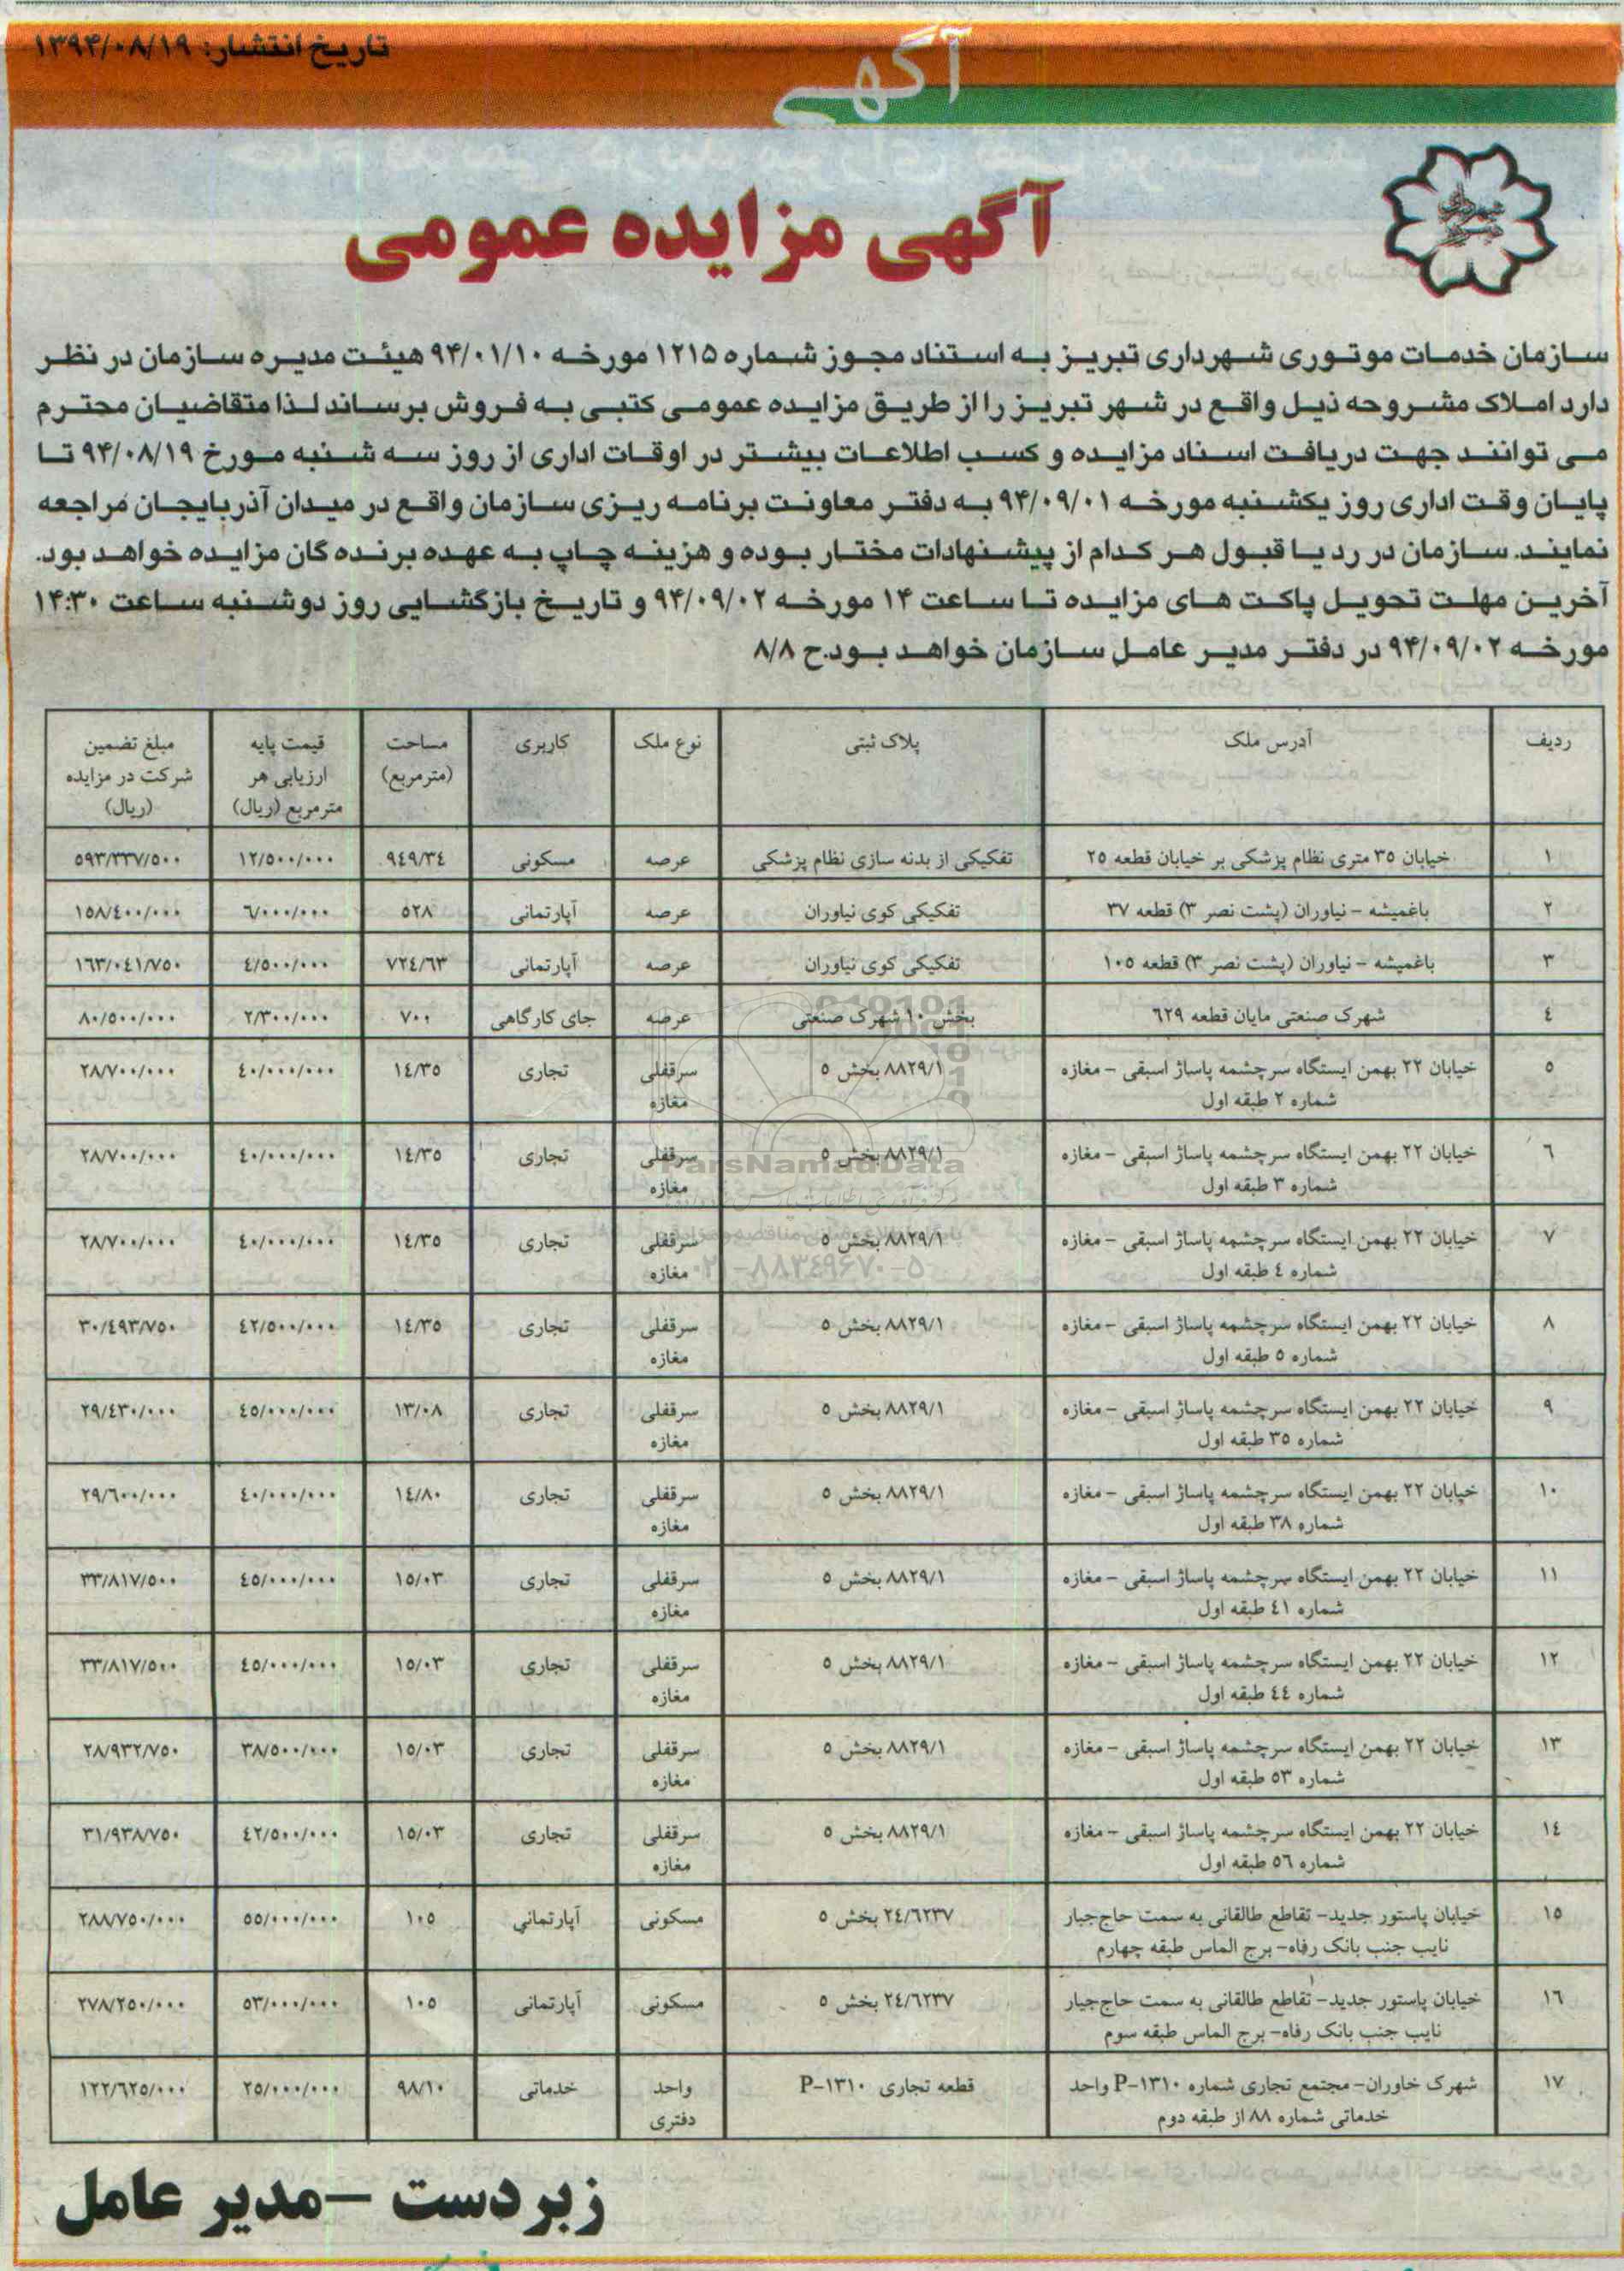 تاریخ انتشار: ۱۳۹۴/۰۸/۱۹
آگهی
آگهی مزایده عمومی
سازمان خدمات موتوری شهرداری تبریز به استناد مجوز شماره ۱۲۱۵ مورخه ۹۴/۰۱/۱۰ هیئت مدیره سازمان در نظر
دارد املاک مشروحه ذیل واقع در شهر تبریز را از طریق مزایده عمومی کتبی به فروش برساند لذا متقاضیان محترم
می توانند جهت دریافت اسناد مزایده و کسب اطلاعات بیشتر در اوقات اداری از روز سه شنبه مورخ ۹۴/۰۸/۱۹ تا
پایان وقت اداری روز یکشنبه مورخه ۹۴/۰۹/۰۱ به دفتر معاونت برنامه ریزی سازمان واقع در میدان آذربایجان مراجعه
نمایند. سازمان در رد یا قبول هر کدام از پیشنهادات مختار بوده و هزینه چاپ به عهده برنده گان مزایده خواهد بود.
آخرین مهلت تحویل پاکت های مزایده تا ساعت ۱۴ مورخه ۹۴/۰۹/۰۲ و تاریخ بازگشایی روز دوشنبه ساعت ۱۴:۳۰
مورخه ۹۴/۰۹/۰۲ در دفتر مدیر عامل سازمان خواهد بود.ح ۸/۸
ردیف آدرس ملک پلاک ثبتی نوع ملک کاربری مساحت (مترمربع) قیمت پایه ارزیابی هر مترمربع (ریال) مبلغ تضمین شرکت در مزایده (ریال)
۱ خیابان ۳۵ متری نظام پزشکی بر خیابان قطعه ۲۵ تفکیکی از بدنه سازی نظام پزشکی عرصه مسکونی ۹٤۹/۳٤ ۱۲/۵۰۰/۰۰۰ ۵۹۳/۳۳۷/۵۰۰
۲ باغمیشه - نیاوران (پشت نصر ۳) قطعه ۳۷ تفکیکی کوی نیاوران عرصه آپارتمانی ۵۲۸ ٦/۰۰۰/۰۰۰ ۱۵۸/٤۰۰/۰۰۰
۳ باغمیشه - نیاوران (پشت نصر ۳) قطعه ۱۰۵ تفکیکی کوی نیاوران عرصه آپارتمانی ۷۲٤/٦۳ ٤/۵۰۰/۰۰۰ ۱٦۳/۰٤۱/۷۵۰
٤ شهرک صنعتی مایان قطعه ٦۲۹ بخش ۱۰ شهرک صنعتی عرصه جای کارگاهی ۷۰۰ ۲/۳۰۰/۰۰۰ ۸۰/۵۰۰/۰۰۰
۵ خیابان ۲۲ بهمن ایستگاه سرچشمه پاساژ اسبقی - مغازه شماره ۲ طبقه اول ۸۸۲۹/۱ بخش ۵ سرقفلی مغازه تجاری ۱٤/۳۵ ٤۰/۰۰۰/۰۰۰ ۲۸/۷۰۰/۰۰۰
٦ خیابان ۲۲ بهمن ایستگاه سرچشمه پاساژ اسبقی - مغازه شماره ۳ طبقه اول ۸۸۲۹/۱ بخش ۵ سرقفلی مغازه تجاری ۱٤/۳۵ ٤۰/۰۰۰/۰۰۰ ۲۸/۷۰۰/۰۰۰
۷ خیابان ۲۲ بهمن ایستگاه سرچشمه پاساژ اسبقی - مغازه شماره ٤ طبقه اول ۸۸۲۹/۱ بخش ۵ سرقفلی مغازه تجاری ۱٤/۳۵ ٤۰/۰۰۰/۰۰۰ ۲۸/۷۰۰/۰۰۰
۸ خیابان ۲۲ بهمن ایستگاه سرچشمه پاساژ اسبقی - مغازه شماره ۵ طبقه اول ۸۸۲۹/۱ بخش ۵ سرقفلی مغازه تجاری ۱٤/۳۵ ٤۲/۵۰۰/۰۰۰ ۳۰/٤۹۳/۷۵۰
۹ خیابان ۲۲ بهمن ایستگاه سرچشمه پاساژ اسبقی - مغازه شماره ۳۵ طبقه اول ۸۸۲۹/۱ بخش ۵ سرقفلی مغازه تجاری ۱۳/۰۸ ٤۵/۰۰۰/۰۰۰ ۲۹/٤۳۰/۰۰۰
۱۰ خیابان ۲۲ بهمن ایستگاه سرچشمه پاساژ اسبقی - مغازه شماره ۳۸ طبقه اول ۸۸۲۹/۱ بخش ۵ سرقفلی مغازه تجاری ۱٤/۸۰ ٤۰/۰۰۰/۰۰۰ ۲۹/٦۰۰/۰۰۰
۱۱ خیابان ۲۲ بهمن ایستگاه سرچشمه پاساژ اسبقی - مغازه شماره ٤۱ طبقه اول ۸۸۲۹/۱ بخش ۵ سرقفلی مغازه تجاری ۱۵/۰۳ ٤۵/۰۰۰/۰۰۰ ۳۳/۸۱۷/۵۰۰
۱۲ خیابان ۲۲ بهمن ایستگاه سرچشمه پاساژ اسبقی - مغازه شماره ٤٤ طبقه اول ۸۸۲۹/۱ بخش ۵ سرقفلی مغازه تجاری ۱۵/۰۳ ٤۵/۰۰۰/۰۰۰ ۳۳/۸۱۷/۵۰۰
۱۳ خیابان ۲۲ بهمن ایستگاه سرچشمه پاساژ اسبقی - مغازه شماره ۵۳ طبقه اول ۸۸۲۹/۱ بخش ۵ سرقفلی مغازه تجاری ۱۵/۰۳ ۳۸/۵۰۰/۰۰۰ ۲۸/۹۳۲/۷۵۰
۱٤ خیابان ۲۲ بهمن ایستگاه سرچشمه پاساژ اسبقی - مغازه شماره ۵٦ طبقه اول ۸۸۲۹/۱ بخش ۵ سرقفلی مغازه تجاری ۱۵/۰۳ ٤۲/۵۰۰/۰۰۰ ۳۱/۹۳۸/۷۵۰
۱۵ خیابان پاستور جدید- تقاطع طالقانی به سمت حاج‌جبار نایب جنب بانک رفاه- برج الماس طبقه چهارم ۲٤/٦۲۳۷ بخش ۵ مسکونی آپارتمانی ۱۰۵ ۵۵/۰۰۰/۰۰۰ ۲۸۸/۷۵۰/۰۰۰
۱٦ خیابان پاستور جدید- تقاطع طالقانی به سمت حاج‌جبار نایب جنب بانک رفاه- برج الماس طبقه سوم ۲٤/٦۲۳۷ بخش ۵ مسکونی آپارتمانی ۱۰۵ ۵۳/۰۰۰/۰۰۰ ۲۷۸/۲۵۰/۰۰۰
۱۷ شهرک خاوران- مجتمع تجاری شماره P-۱۳۱۰ واحد خدماتی شماره ۸۸ از طبقه دوم قطعه تجاری P-۱۳۱۰ واحد دفتری خدماتی ۹۸/۱۰ ۲۵/۰۰۰/۰۰۰ ۱۲۲/٦۲۵/۰۰۰
ParsNamadData
۰۲۱-۸۸۳۴۹۶۷۰-۵
زبردست -مدیر عامل